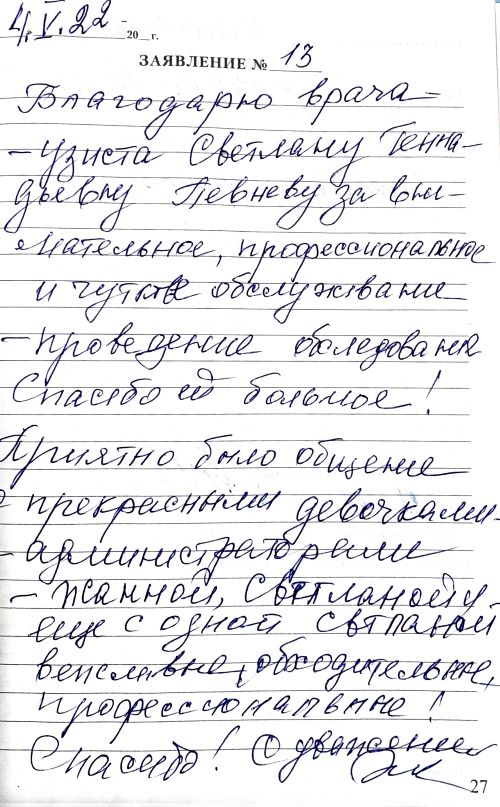 4. V. 22 20 г.
ЗАЯВЛЕНИЕ № 13
Благодарю врача-
- узиста Светлану Генна-
дьевну Певневу за вни-
мательное, профессиональное
и чуткое обслуживание
- проведение обследования
Спасибо ей большое!
Приятно было общение
с прекрасными девочками-
- администраторами
- Жанной, Светланой и
еще с одной Светланой
вежливые, обходительные,
профессиональные!
Спасибо! С уважением
27